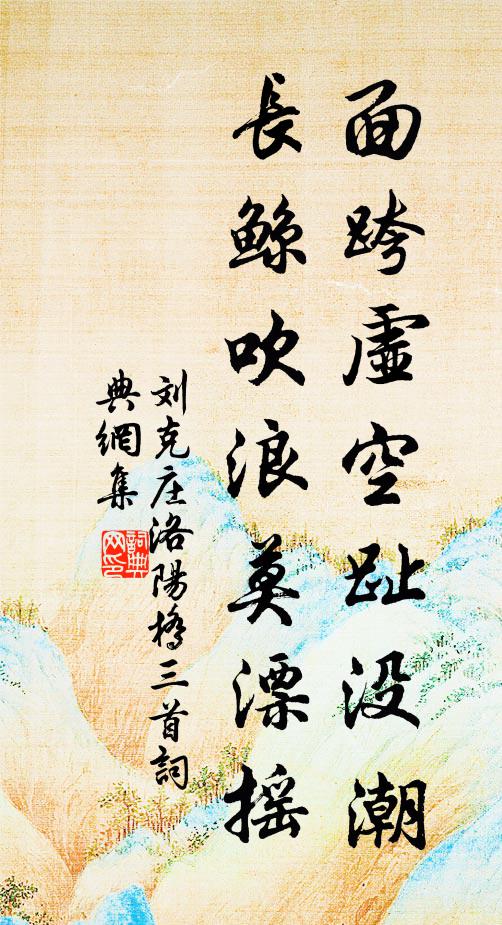 面跨虚空趾没潮
長鲸吹浪莫漂摇
刘克庄洛陽橋三首詞
典網集
詞典
网印